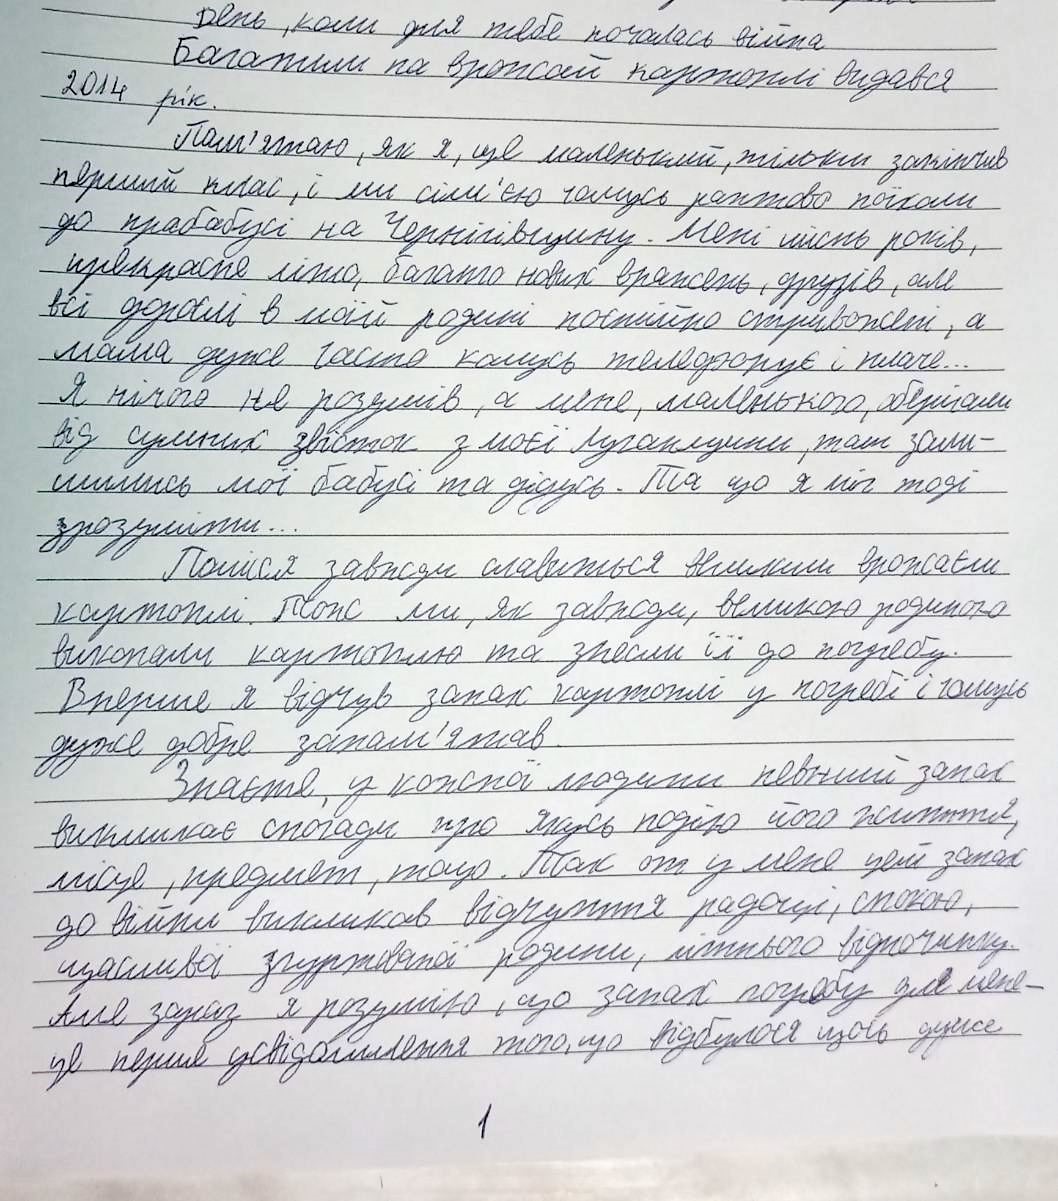 День, коли для тебе почалась війна
Багатим на врожай картоплі видався
2014 рік.
Пам'ятаю, як я, ще маленький, тільки закінчив
перший клас, і ми сім'єю чомусь раптово поїхали
до прабабусі на Чернігівщину. Мені шість років,
прекрасне літо, багато нових вражень, друзів, але
всі дорослі в моїй родині постійно стривожені, а
мама дуже часто комусь телефонує і плаче...
Я нічого не розумів, а мене, маленького, оберігали
від сумних звісток з моєї Луганщини, там зали-
шились мої бабусі та дідусь. Та що я міг тоді
зрозуміти...
Полісся завжди славиться великим врожаєм
картоплі. Тож ми, як завжди, великою родиною
викопали картоплю та знесли її до погребу.
Вперше я відчув запах картоплі у погребі і чомусь
дуже добре запам'ятав.
Знаєте, у кожної людини певний запах
викликає спогади про якусь подію його життя,
місце, предмет, тощо. Так от у мене цей запах
до війни викликав відчуття радощі, спокою,
щасливої згуртованої родини, літнього відпочинку.
Але зараз я розумію, що запах погребу для мене-
це перше усвідомлення того, що відбулося щось дуже
1